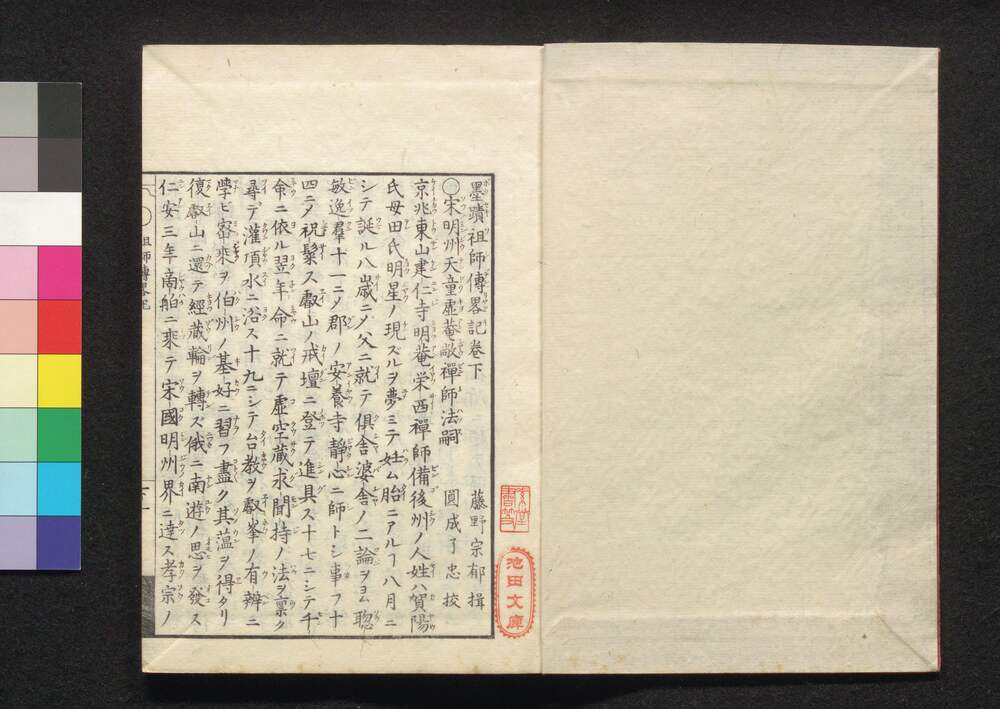 墨蹟祖師傳畧記卷下　藤野宗郁揖
〇宋明州天童虛菴敞禪師法嗣　圓成了忠挍
京兆東山建仁寺明菴栄西禪師備後州ノ人姓ハ賀陽
氏母田氏明星ノ現ズルヲ夢ミテ妊ム胎ニアルヿ八月ニ
シテ誕ル八歳ニメ父ニ就テ俱舎婆舎ノ二論ヲヨム聡
敏逸羣十一ニメ郡ノ安養寺静心ニ師トシ事フ十
四ニメ祝髪ス叡山ノ戒壇ニ登テ進具ス十七ニシテ千
命ニ依ル翌年命ニ就テ虚空蔵求聞持ノ法ヲ禀ク
尋デ灌頂水ニ浴ス十九ニシテ台教ヲ叡峯ノ有辨ニ
學ビ密乘ヲ伯州ノ基好ニ習フ盡ク其薀ヲ得タリ
復叡山ニ還テ經蔵輪ヲ轉ズ俄ニ南遊ノ思ヲ發ス
仁安三年商舶ニ乘テ宋國明州界ニ達ス孝宗ノ
祖師傳畧
池田文庫